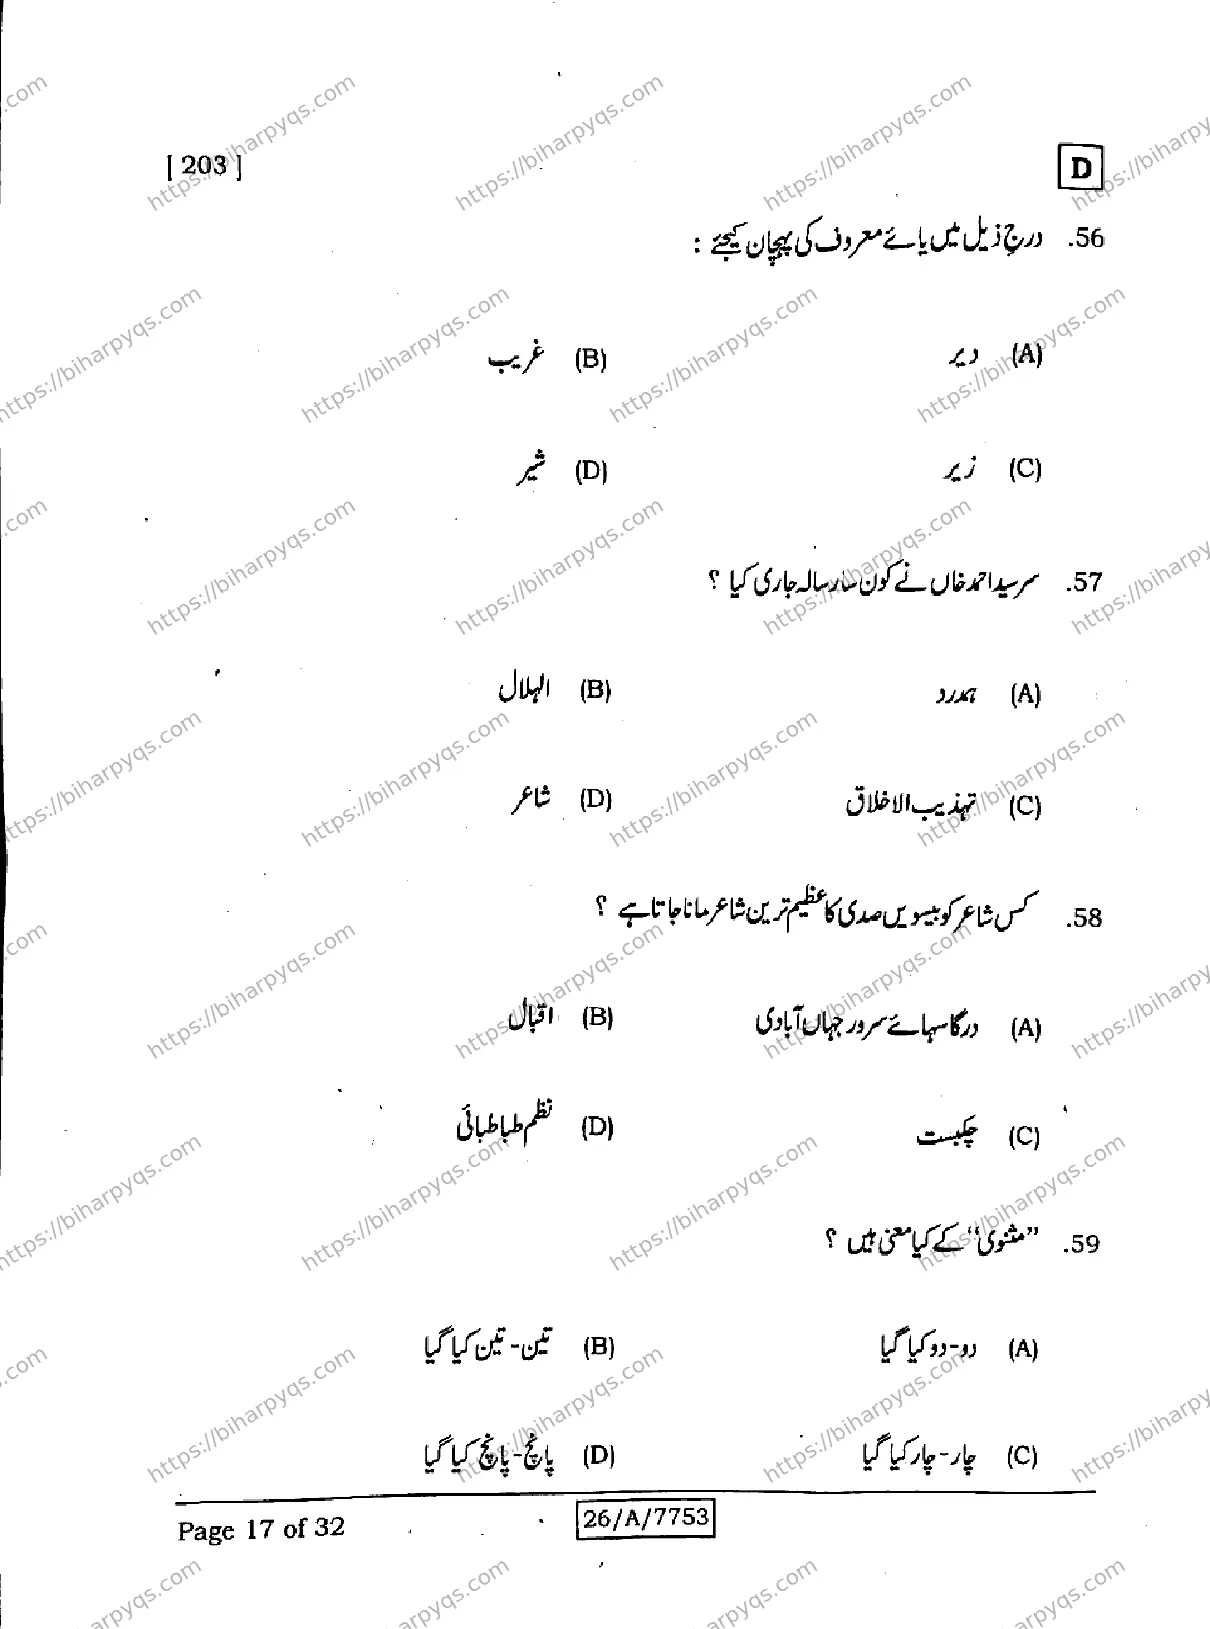 [ 203 ]
D
56. درج ذیل میں یائے معروف کی پہچان کیجئے :
(A) دیر (B) غریب
(C) زیر (D) شیر
57. سر سید احمد خاں نے کون سا رسالہ جاری کیا ؟
(A) ہمدرد (B) الہلال
(C) تہذیب الاخلاق (D) شاعر
58. کس شاعر کو بیسویں صدی کا عظیم ترین شاعر مانا جاتا ہے ؟
(A) درگا سہائے سرور جہاں آبادی (B) اقبال
(C) چکبست (D) نظم طباطبائی
59. ”مثنوی“ کے کیا معنی ہیں ؟
(A) دو-دو کیا گیا (B) تین-تین کیا گیا
(C) چار-چار کیا گیا (D) پانچ-پانچ کیا گیا
Page 17 of 32
26/A/7753
https://biharpyqs.com